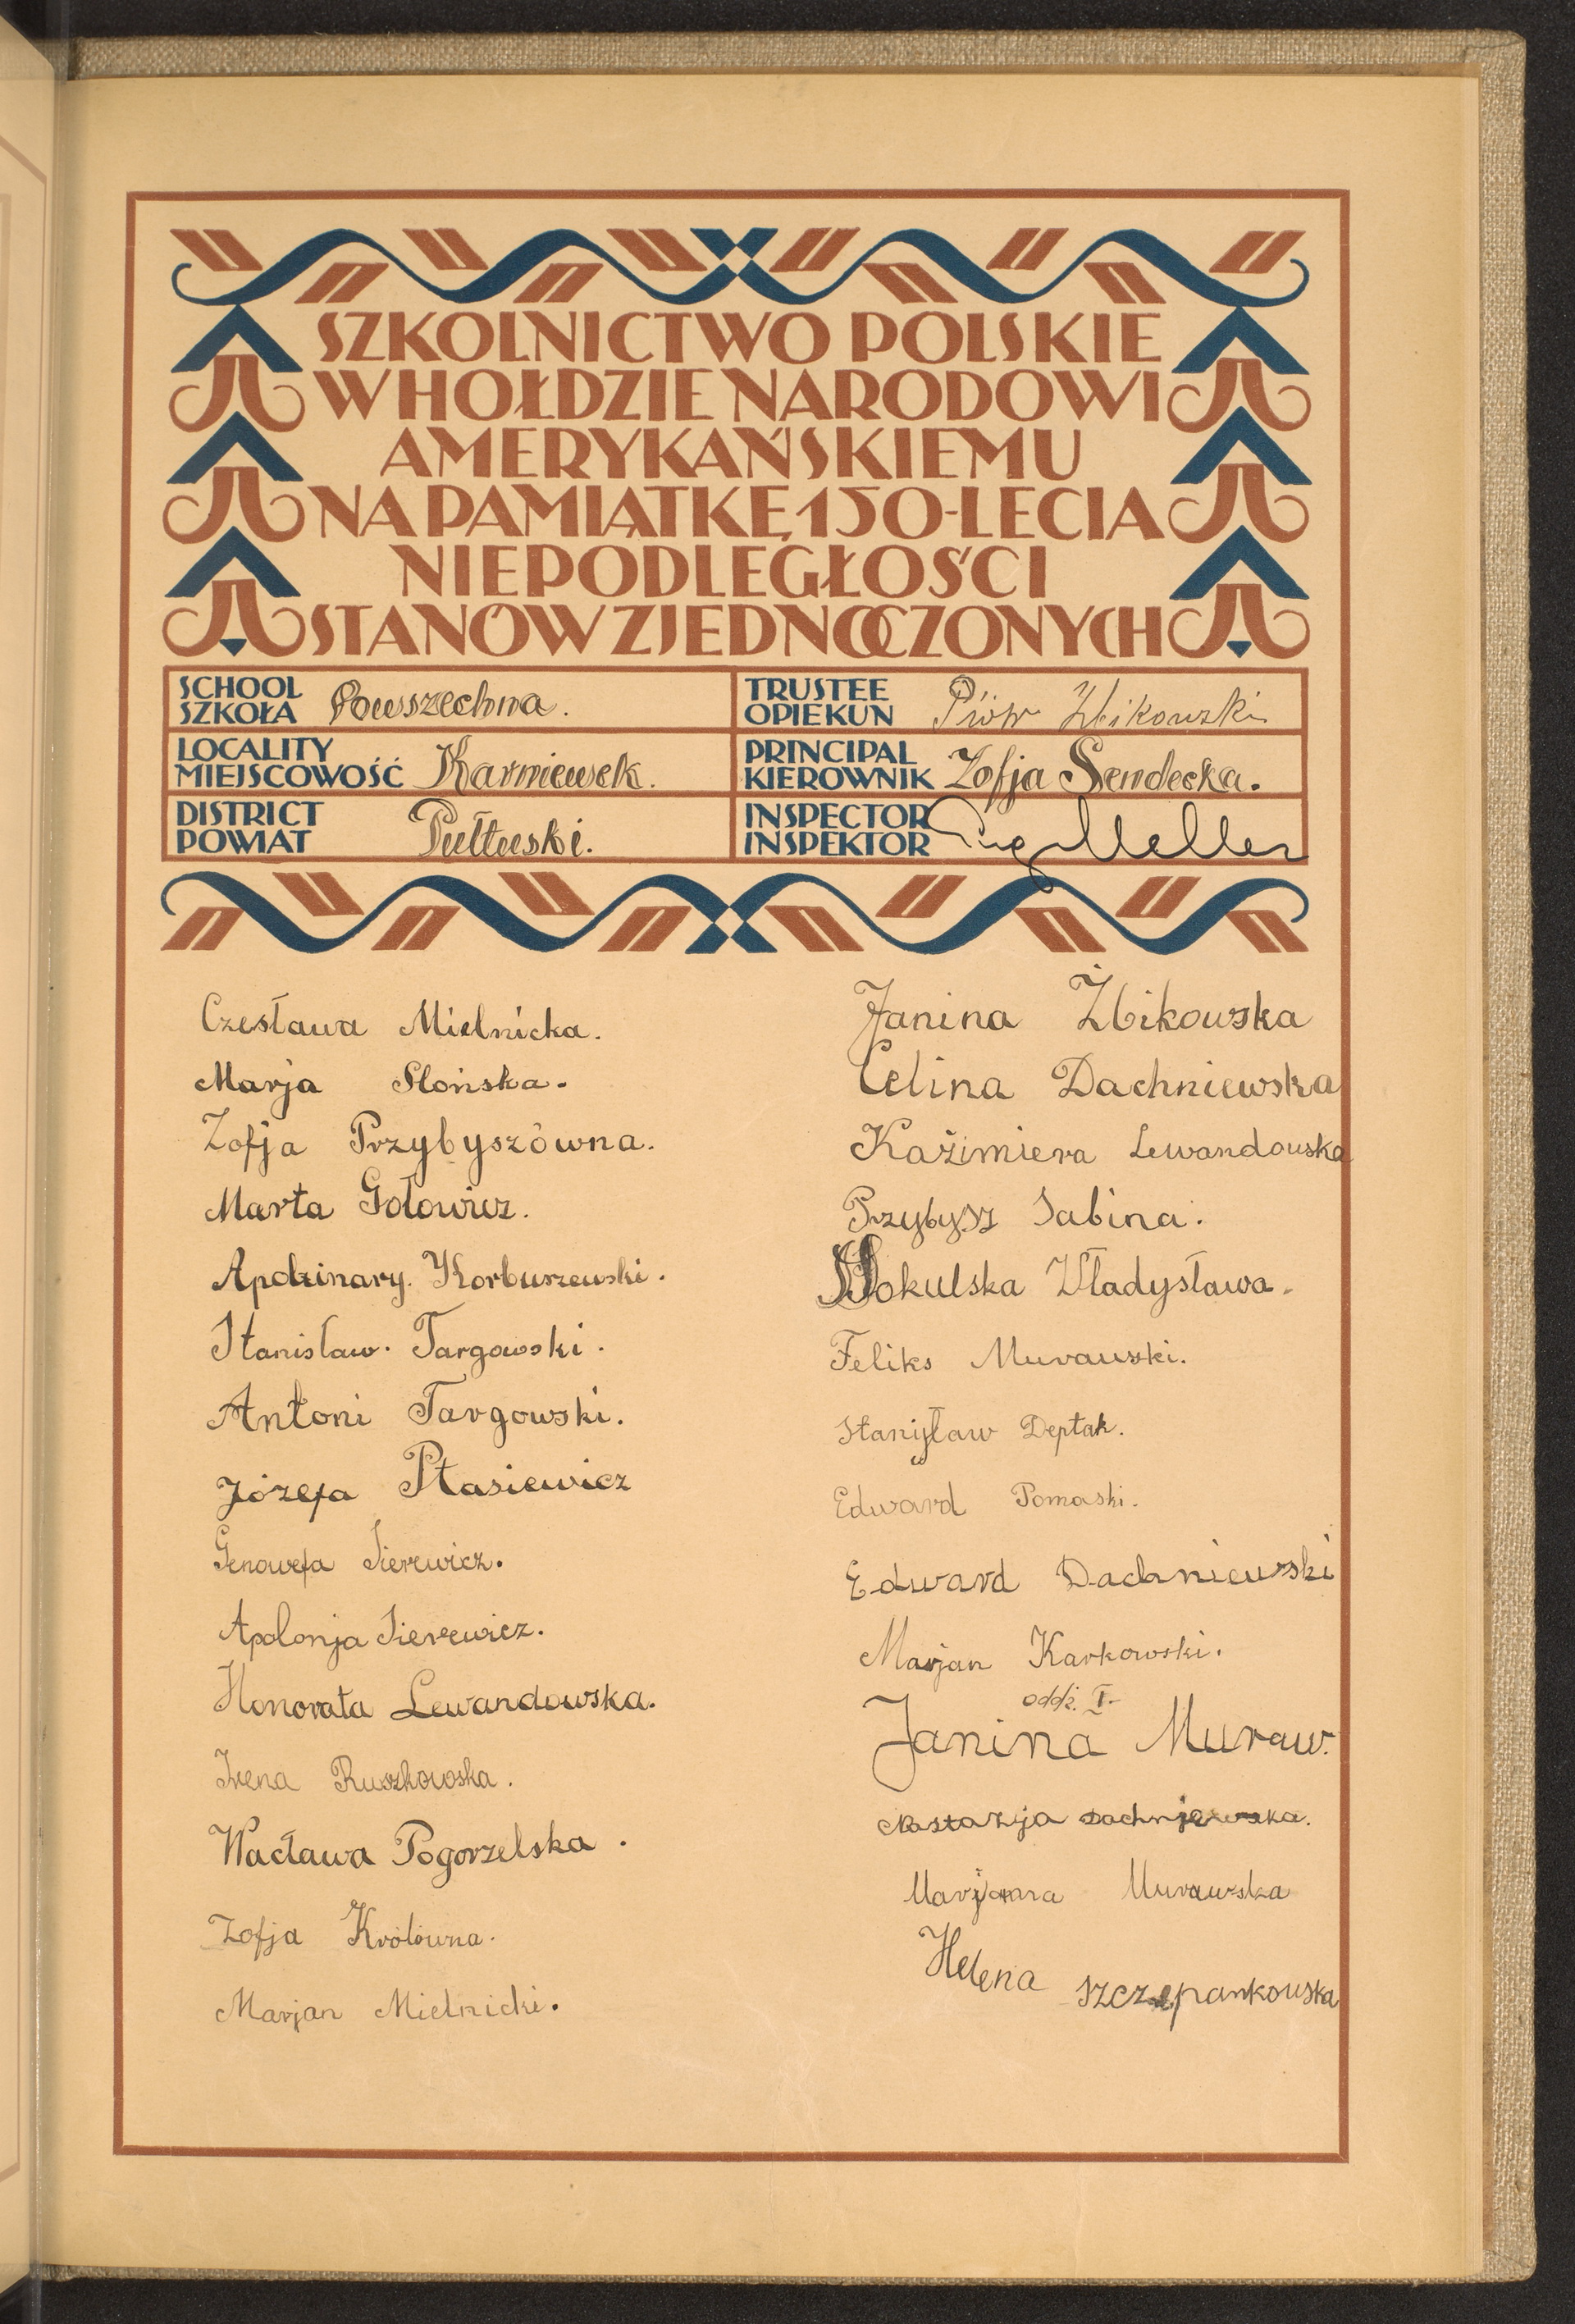 SZKOLNICTWO POLSKIE
W HOŁDZIE NARODOWI
AMERYKAŃSKIEMU
NA PAMIĄTKĘ 150-LECIA
NIEPODLEGŁOŚCI
STANÓW ZJEDNOCZONYCH
SCHOOL
SZKOŁA Powszechna.
LOCALITY
MIEJSCOWOŚĆ Karniewek.
DISTRICT
POWIAT Pułtuski.
TRUSTEE
OPIEKUN Piotr Zbikowski
PRINCIPAL
KIEROWNIK Zofja Sendecka.
INSPECTOR
INSPEKTOR Meller
Czesława Mielnicka.
Marja Słońska.
Zofja Przybyszówna.
Marta Gołowicz.
Apolinary. Korbuszewski.
Stanisław. Targowski.
Antoni Targowski.
Józefa Ptasiewicz
Genowefa Sierewicz.
Apolonja Sierewicz.
Honorata Lewandowska.
Irena Ruszkowska.
Wacława Pogorzelska.
Zofja Królówna.
Marjan Mielnicki.
Janina Żbikowska
Celina Dachniewska
Kaźimiera Lewandowska
Przybysz Sabina.
Sokulska Władysława.
Feliks Murawski.
Stanisław Deptak.
Edward Pomaski.
Edward Dachniewski
Marjan Karkowski.
oddz. I.
Janina Muraw.
Nastazja Dachnjewska.
Marjanna Murawska
Helena Szczepankowska